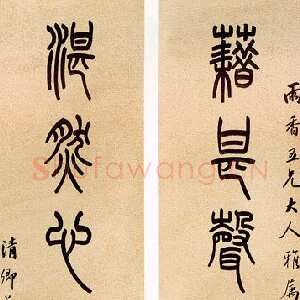 雨香五兄大人雅属
藉甚聲
湛然心
清卿
Shufawang.CN